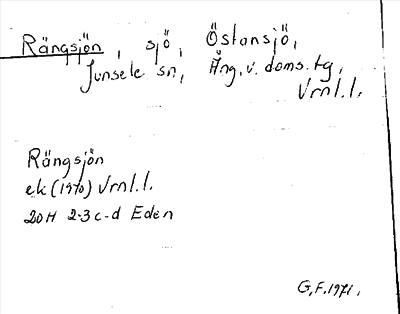 Rängsjön, sjö, Östansjö,
Junsele sn, Ång. v. doms. tg,
Vrnl. l.
Rängsjön
ek (1970) Vrnl. l.
20H 2-3 c-d Eden
G.F. 1971.